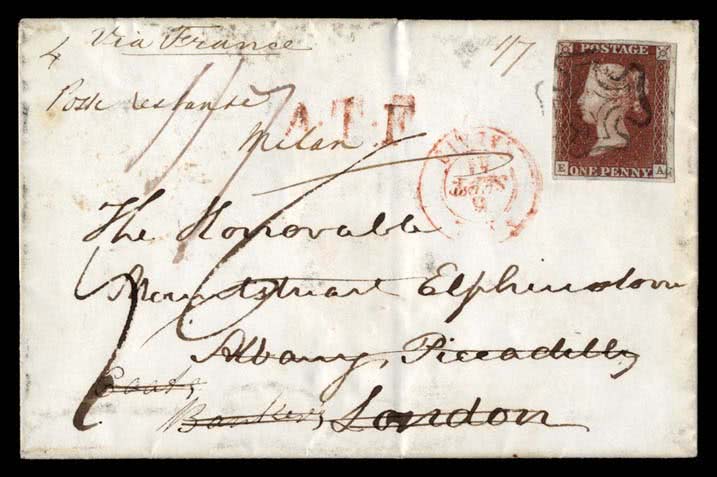 4 Via France
1/7
Poste restante
Milan
A.T.F
POSTAGE
E A
ONE PENNY
The Honorable
Mountstuart Elphinstone
Albany, Piccadilly
Coutts,
Bankers, London